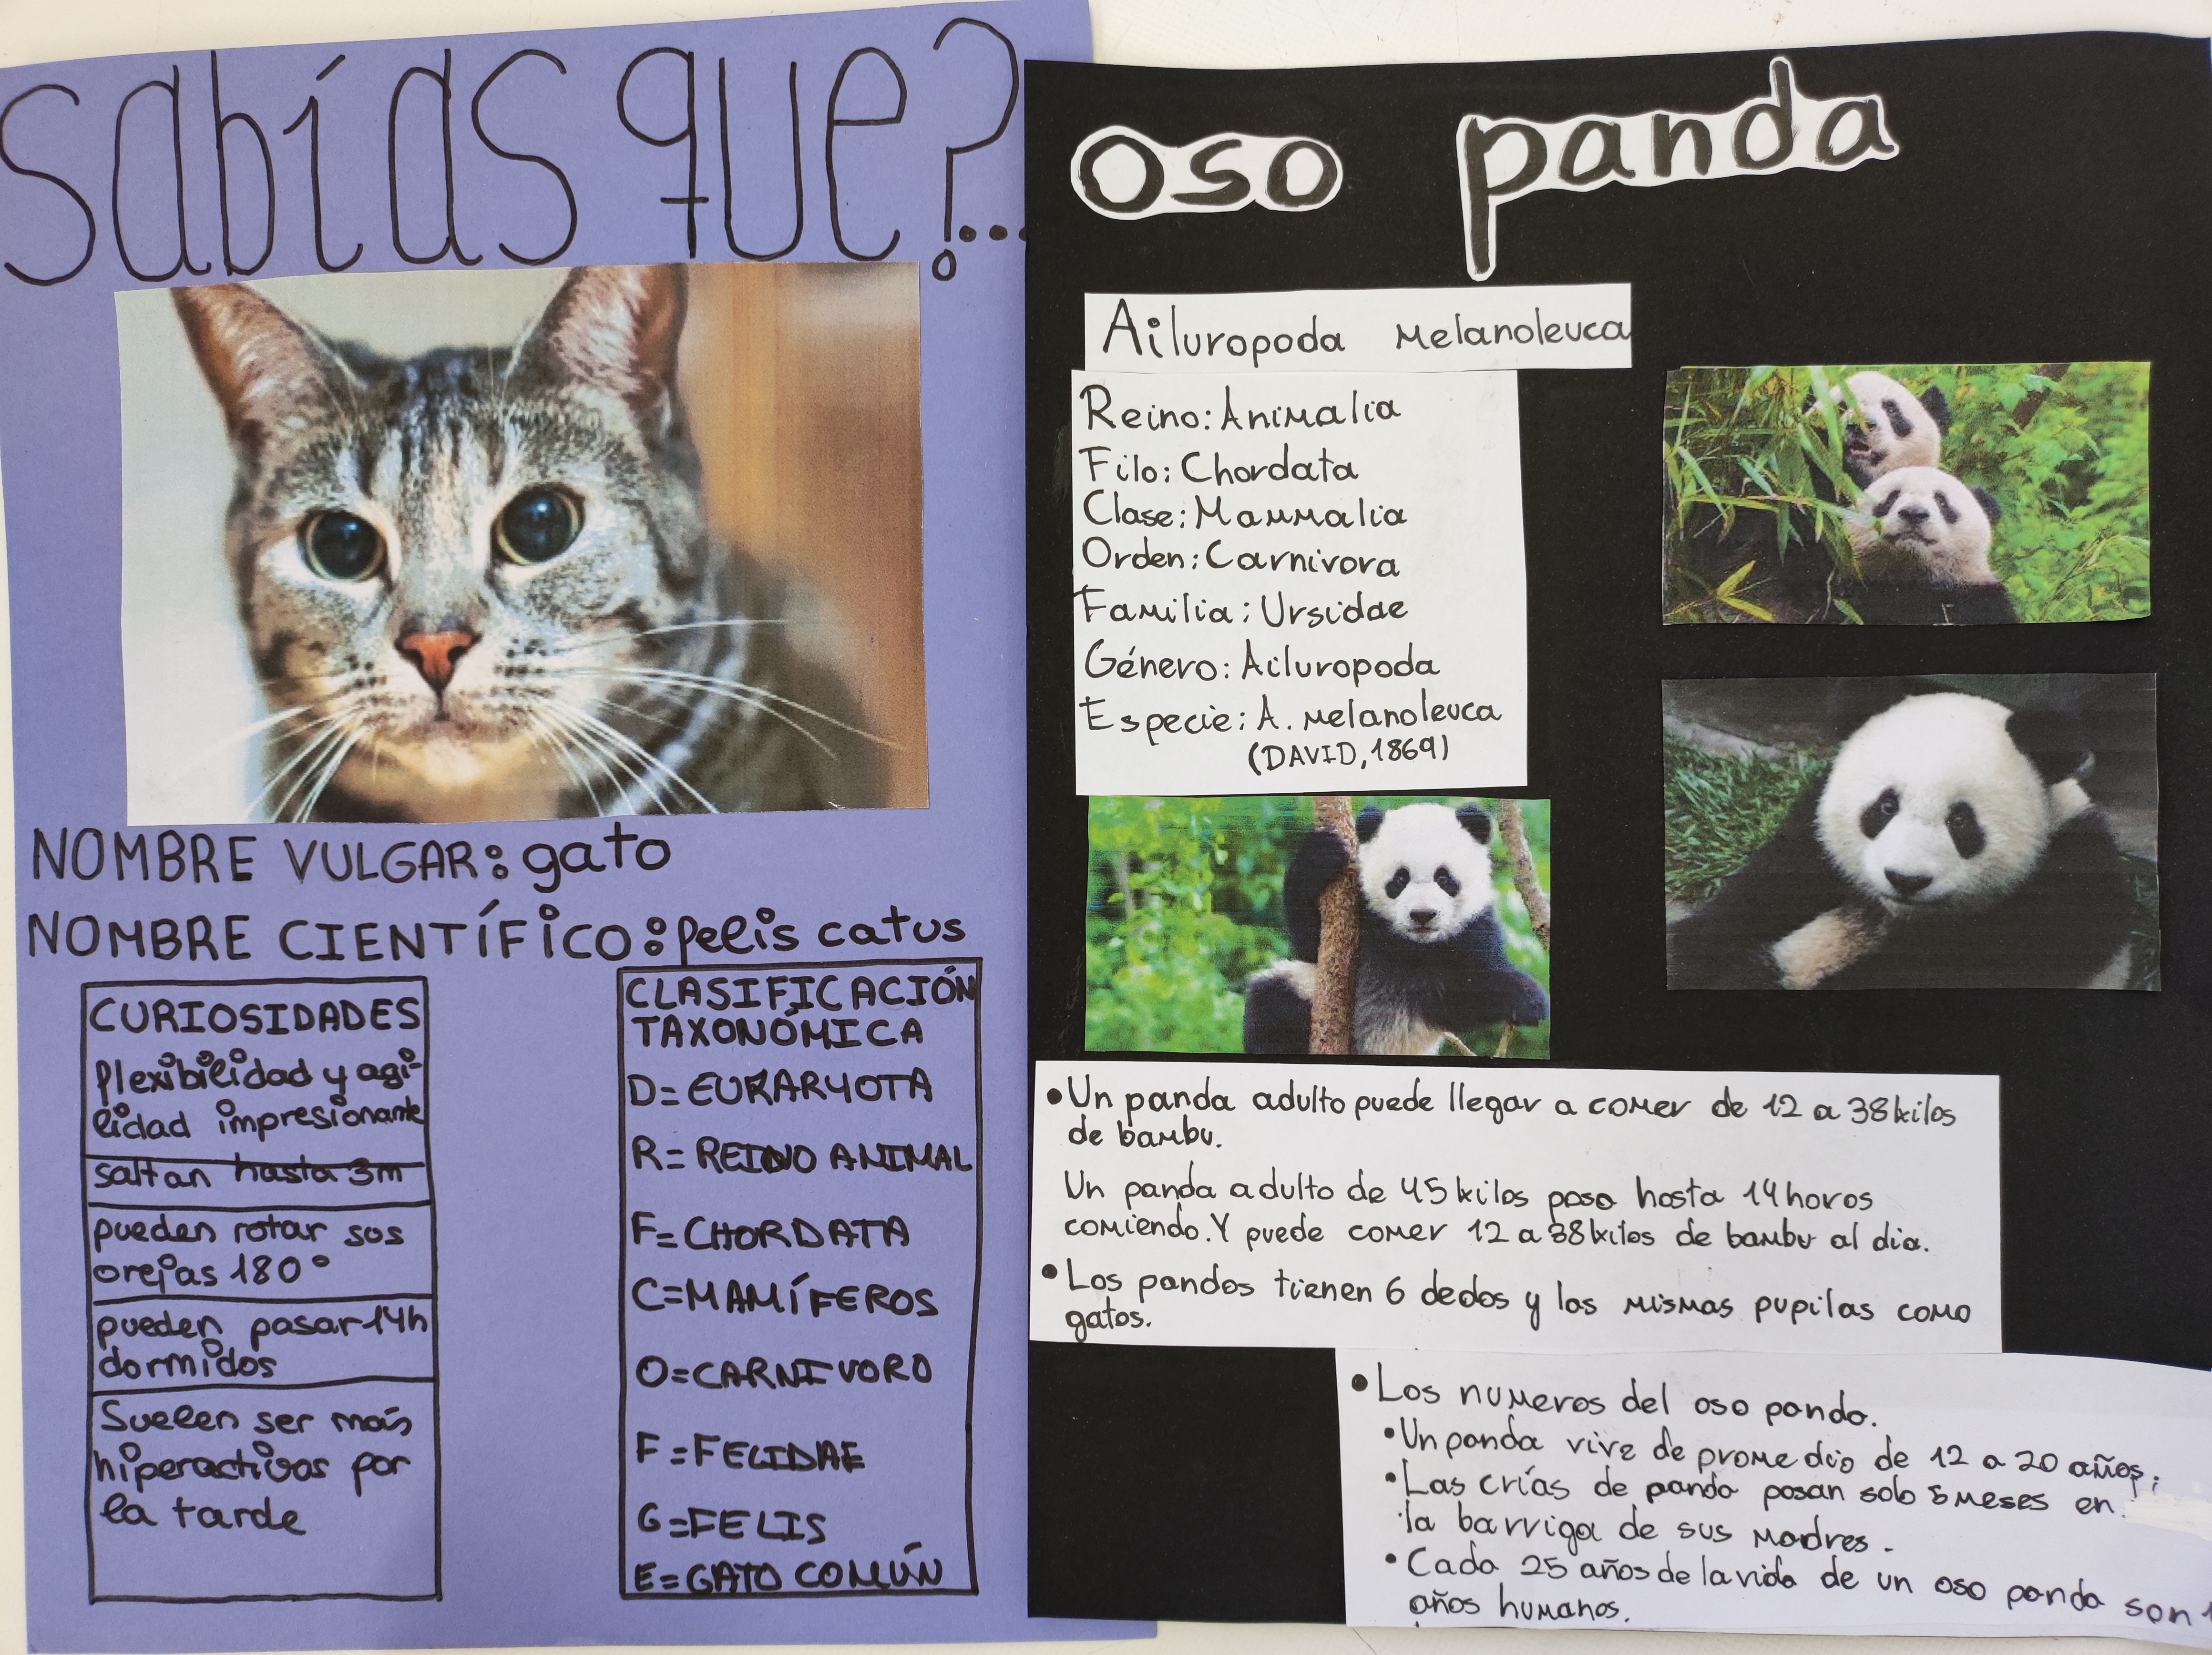 sabías que?...
NOMBRE VULGAR: gato
NOMBRE CIENTÍFICO: felis catus
CURIOSIDADES
flexibilidad y agi-
lidad impresionante
saltan hasta 3m
pueden rotar sos
orejas 180°
pueden pasar 14h
dormidos
Suelen ser más
hiperactivos por
la tarde
CLASIFICACIÓN
TAXONÓMICA
D= EUKARYOTA
R= REINO ANIMAL
F= CHORDATA
C=MAMÍFEROS
O=CARNIVORO
F=FELIDAE
G=FELIS
E=GATO COMÚN
oso panda
Ailuropoda Melanoleuca
Reino: Animalia
Filo: Chordata
Clase: Mammalia
Orden: Carnivora
Familia: Ursidae
Género: Ailuropoda
Especie: A. Melanoleuca
(DAVID, 1869)
• Un panda adulto puede llegar a comer de 12 a 38 kilos
de bambu.
Un panda adulto de 45 kilos pasa hasta 14 horas
comiendo. Y puede comer 12 a 38 kilos de bambu al dia.
• Los pandas tienen 6 dedos y las mismas pupilas como
gatos.
• Los numeros del oso panda.
• Un panda vive de promedio de 12 a 20 años;
• Las crías de panda pasan solo 5 meses en
la barriga de sus madres.
• Cada 25 años de la vida de un oso panda son
años humanos.